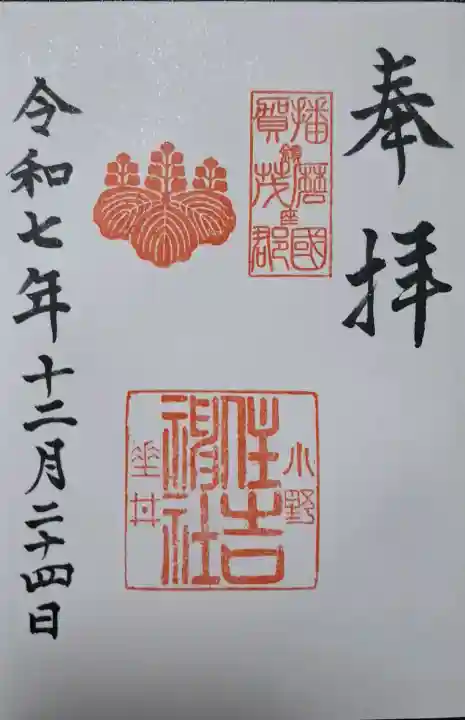 奉拝
播磨國
賀茂郡
鎮座
小野
住吉
神社
坐
令和七年十二月二十四日